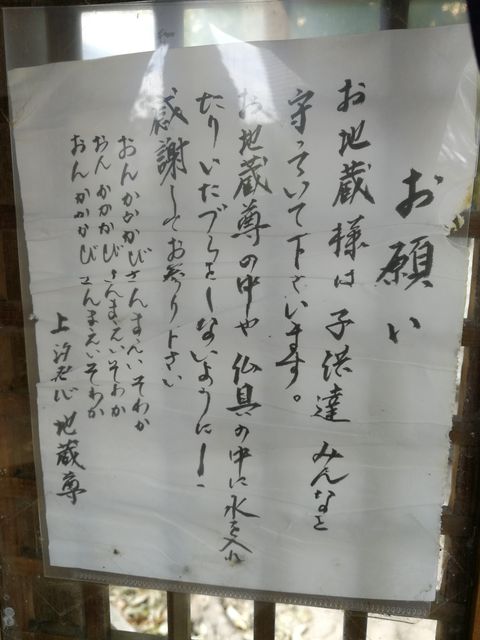 お願い
お地蔵様は子供達みんなを
守っていて下さいます。
お地蔵尊の中や仏具の中に水を入れ
たりいたづらをしないように！
感謝してお参り下さい
おんかかかびさんまえいそわか
おんかかかびさんまえいそわか
おんかかかびさんまえいそわか
上 地蔵尊